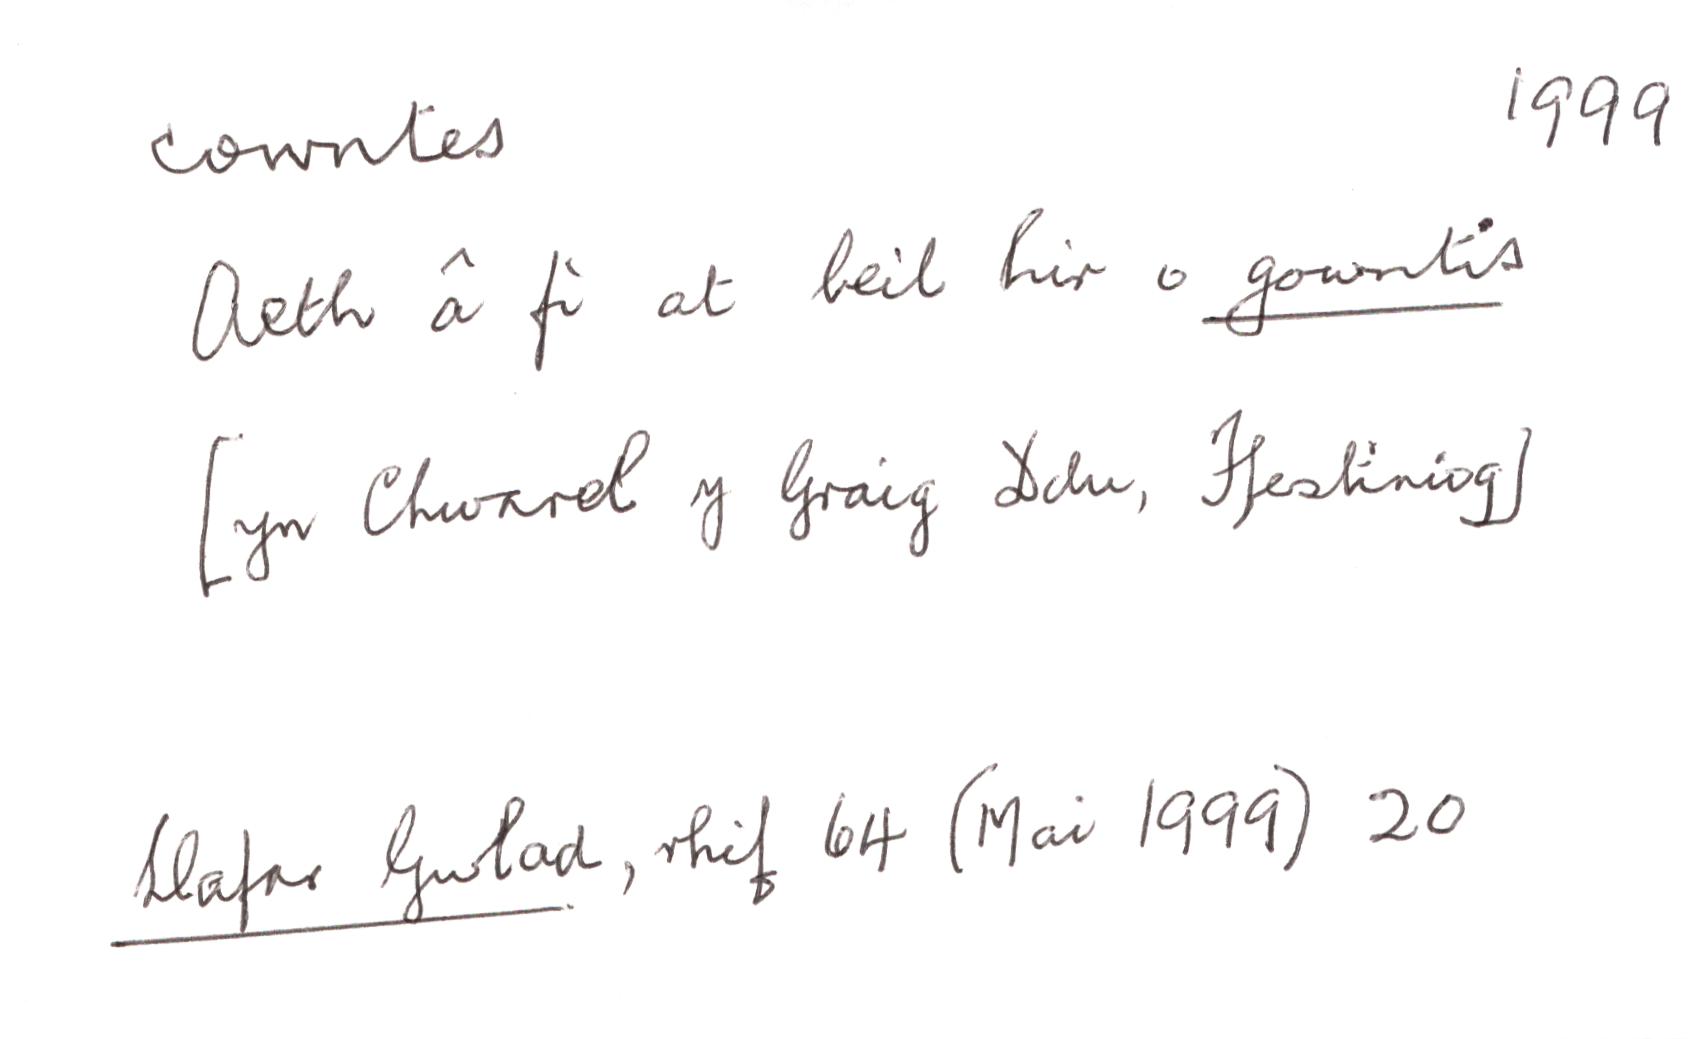 cowntes 1999
Aeth â fi at beil hir o gowntis
[yn Chwarel y Graig Ddu, Ffestiniog]
Llafar Gwlad, rhif 64 (Mai 1999) 20